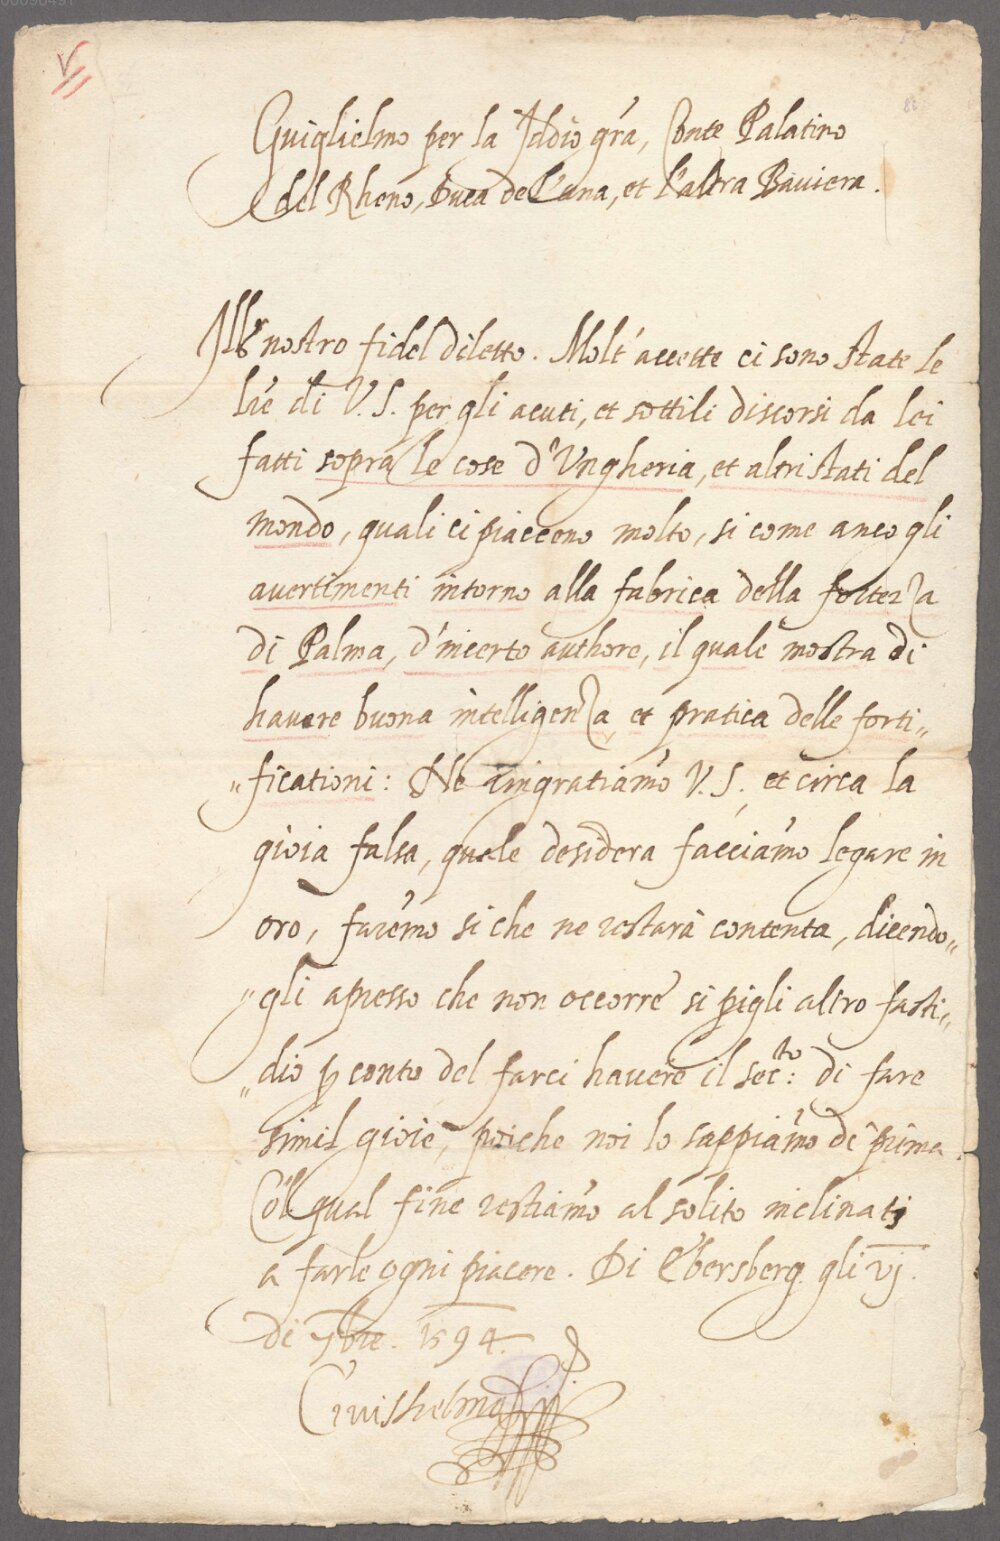 Guiglielmo per la Iddio gra', Conte Palatino
del Rheno, Duca de l'una, et l'altra Baviera.
Illre nostro fidel diletto. Molt' accette ci sono state le
lre' di V. S. per gli acuti, et sottili discorsi da lei
fatti sopra le cose d'Ungheria, et altri stati del
mondo, quali ci piacceno molto, si come anco gli
avertimenti intorno alla fabrica della fortezza
di Palma, d'incerto authore, il quale mostra di
havere buona intelligenza, et pratica delle forti„
„ficationi: Ne ringratiamo V. S., et circa la
gioia falsa, quale desidera facciamo legare in
oro, faremo si che ne restarà contenta, dicendo„
„gli apresso che non occorre si pigli altro fasti„
„dio ꝑ conto del farci havere il secto: di fare
simil gioie, poiche noi lo sappiamo de prima.
Col qual fine restiamo al solito inclinati
a farle ogni piacere. Di Ebersberg gli vj.
di 7bre. 1594.
Guilhelmo